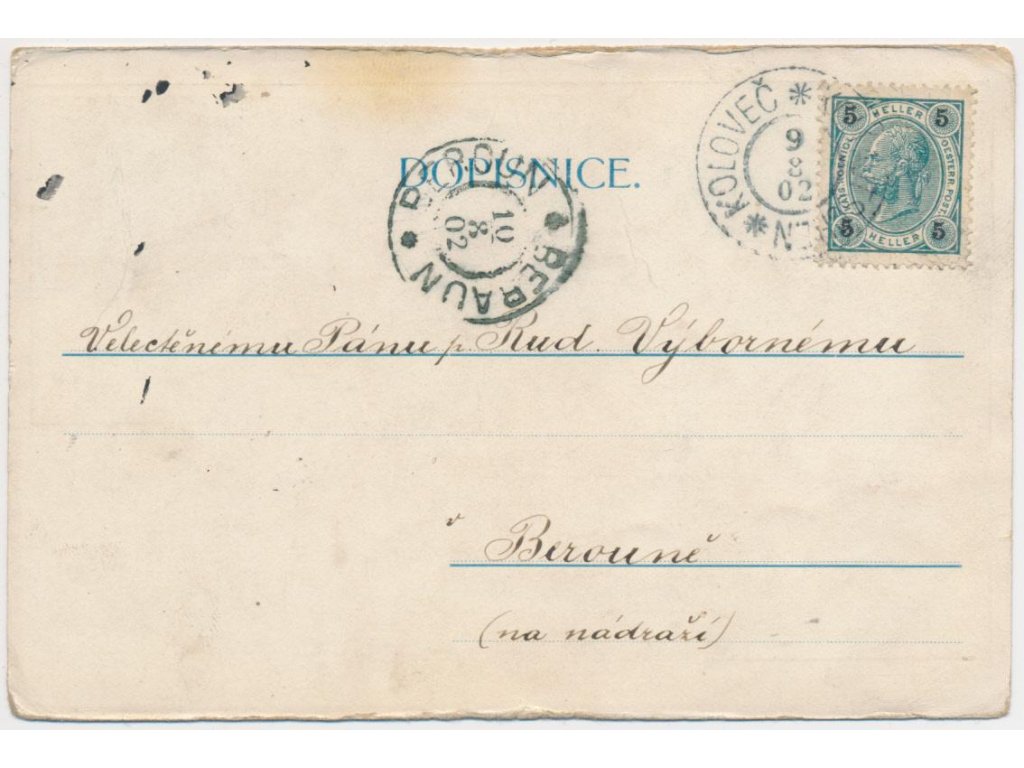 DOPISNICE.
KOLOVEČ
9
8
02
5 HELLER 5
KAIS. KOENIGL. OESTERR. POST.
5 HELLER 5
BEROUN
10
8
02
BERAUN
Velectěnému Pánu p. Rud. Výbornému
v Berouně
(na nádraží)